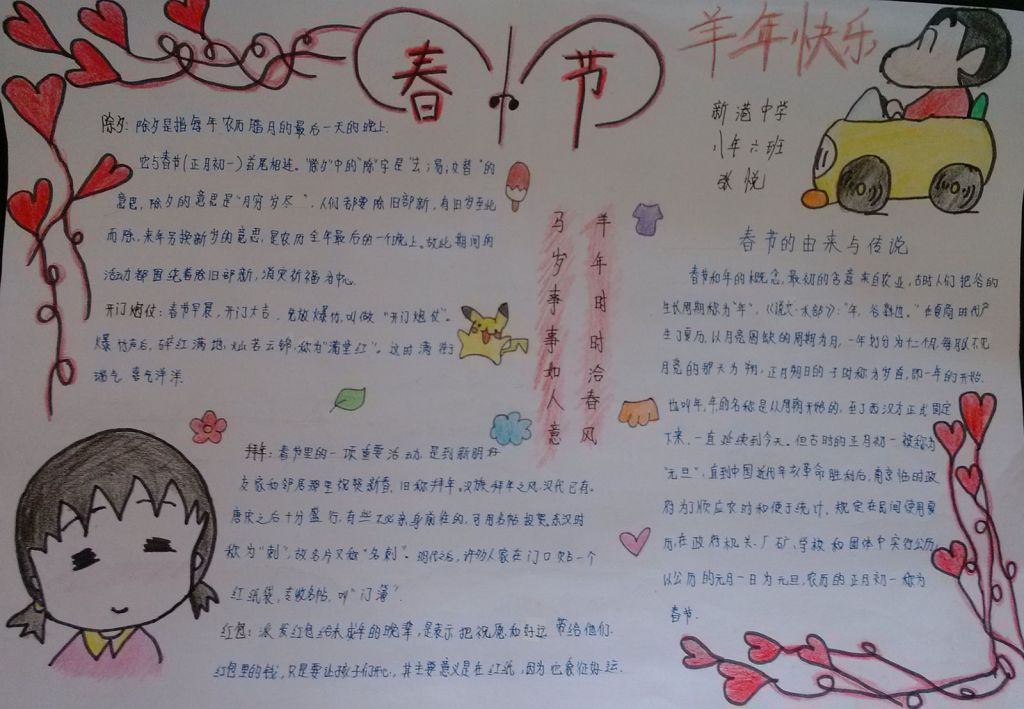 春节
羊年快乐
新港中学
八年六班
张悦
除夕:除夕是指每年农历腊月的最后一天的晚上.
它与春节(正月初一)首尾相连。"除夕"中的"除"字是"去;易;交替"的
意思,除夕的意思是"月穷岁尽",人们都要除旧部新,有旧岁至此
而除,来年另换新岁的意思,是农历全年最后的一个晚上。故此期间的
活动都围绕着除旧部新,消灾祈福为中心.
开门炮仗:春节早晨,开门大吉,先放爆竹,叫做"开门炮仗"。
爆竹声后,碎红满地,灿若云锦,称为"满堂红"。这时满街
瑞气 喜气洋洋.
羊年时时洽春风
马岁事事如人意
春节的由来与传说
春节和年的概念,最初的含意来自农业,古时人们把谷的
生长周期称为"年",《说文·禾部》:"年,谷熟也。"在夏商时代产
生了夏历,以月亮圆缺的周期为月,一年划分为十二个月,每月以不见
月亮的那天为朔,正月朔日的子时称为岁首,即一年的开始.
也叫年,年的名称是从周朝开始的,至了西汉才正式固定
下来,一直延续到今天。但古时的正月初一被称为
"元旦",直到中国近代辛亥革命胜利后,南京临时政
府为了顺应农时和便于统计,规定在民间使用夏
历,在政府机关、厂矿、学校和团体中实行公历,
以公历的元月一日为元旦,农历的正月初一称为
春节.
拜年:春节里的一项重要活动,是到新朋好
友家和邻居那里祝贺新春,旧称拜年。汉族拜年之风,汉代已有。
唐宋之后十分盛行,有些不必亲身前往的,可用名帖投贺。东汉时
称为"刺",故名片又称"名刺"。明代之后,许多人家在门口贴一个
红纸袋,专收名帖,叫"门簿".
红包:派发红包给未成年的晚辈,是表示把祝愿和好运带给他们.
红包里的钱,只是要让孩子们开心,其主要意义是在红纸,因为它象征好运.